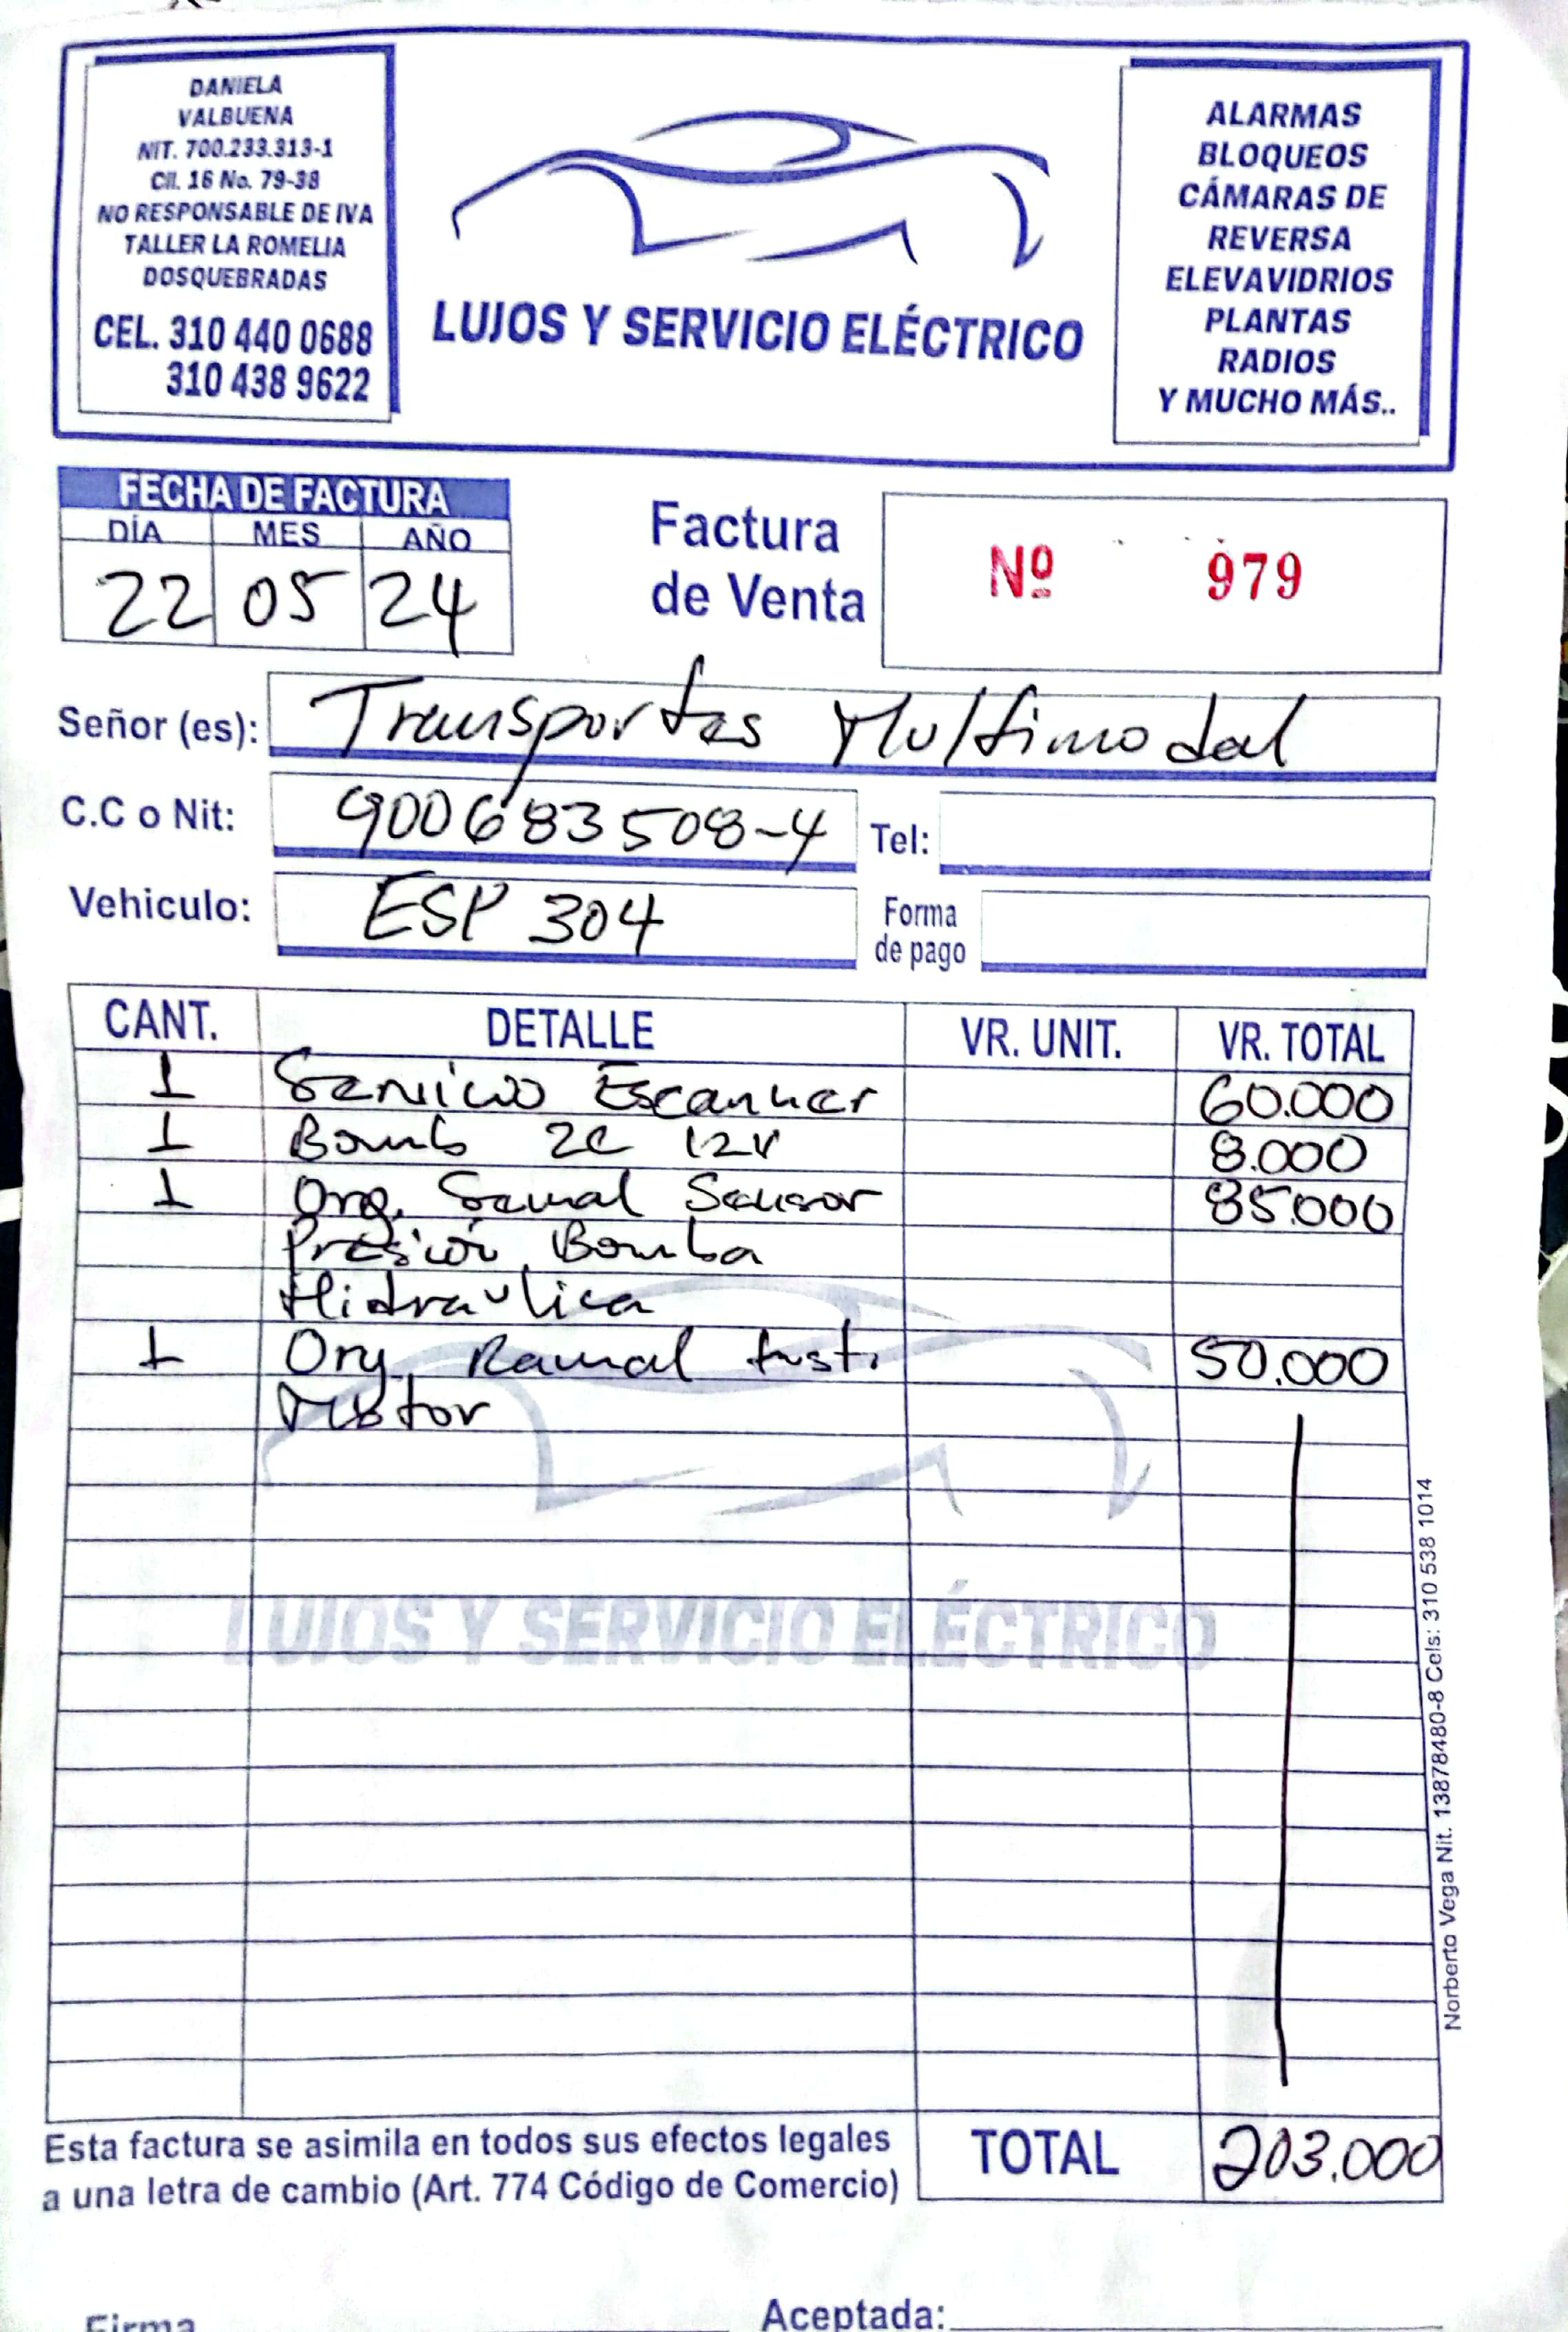 DANIELA
VALBUENA
NIT. 700.233.313-1
Cll. 16 No. 79-38
NO RESPONSABLE DE IVA
TALLER LA ROMELIA
DOSQUEBRADAS
CEL. 310 440 0688
310 438 9622
LUJOS Y SERVICIO ELÉCTRICO
ALARMAS
BLOQUEOS
CÁMARAS DE
REVERSA
ELEVAVIDRIOS
PLANTAS
RADIOS
Y MUCHO MÁS..
FECHA DE FACTURA
DÍA MES AÑO
22 05 24
Factura
de Venta
Nº 979
Señor (es): Transportes Multimodal
C.C o Nit: 900683508-4 Tel:
Vehiculo: ESP 304 Forma
de pago
CANT. DETALLE VR. UNIT. VR. TOTAL
1 Servicio Escanner 60.000
1 Bomb 2C 12V 8.000
1 Org. Sensor 85.000
Presión Bomba
Hidraulica
1 Org Ramal Inst. 50.000
Motor
LUJOS Y SERVICIO ELÉCTRICO
Norberto Vega Nit. 13878480-8 Cels: 310 538 1014
Esta factura se asimila en todos sus efectos legales
a una letra de cambio (Art. 774 Código de Comercio)
TOTAL 203.000
Firma
Aceptada: